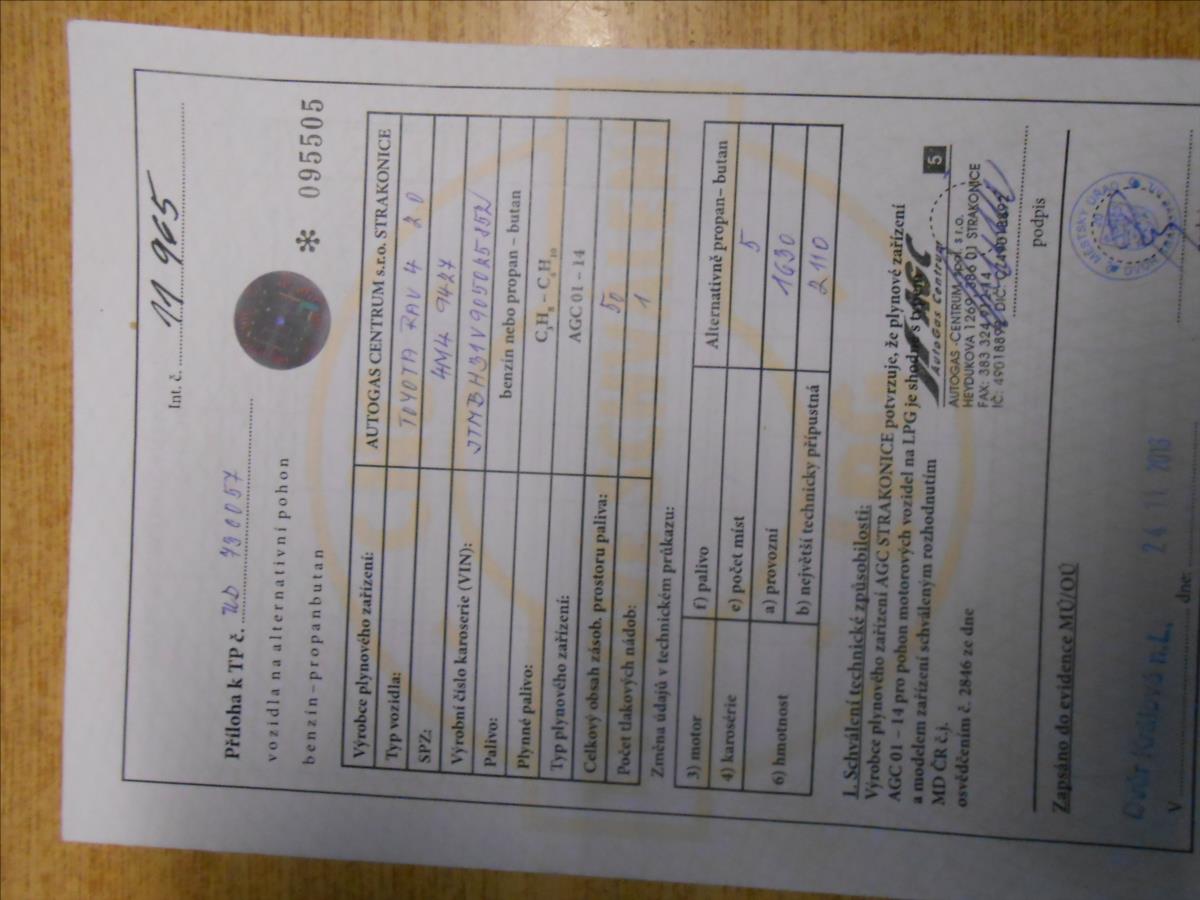 Int. č. 11 965
Příloha k TP č. UD 730057
vozidla na alternativní pohon
benzín – propanbutan
* 095505
Výrobce plynového zařízení: AUTOGAS CENTRUM s.r.o. STRAKONICE
Typ vozidla: TOYOTA RAV 4 2.0
SPZ: 4M4 9427
Výrobní číslo karoserie (VIN): JTMBH31V905025852
Palivo: benzín nebo propan – butan
Plynné palivo: C3H8 – C4H10
Typ plynového zařízení: AGC 01 – 14
Celkový obsah zásob. prostoru paliva: 50
Počet tlakových nádob: 1
Změna údajů v technickém průkazu:
3) motor f) palivo Alternativně propan– butan
4) karosérie e) počet míst 5
6) hmotnost a) provozní 1630
b) největší technicky přípustná 2110
1. Schválení technické způsobilosti:
Výrobce plynového zařízení AGC STRAKONICE potvrzuje, že plynové zařízení
AGC 01 – 14 pro pohon motorových vozidel na LPG je shodné s typem
a modelem zařízení schváleným rozhodnutím
MD ČR č.j.
osvědčením č. 28466 ze dne
AGC 5
AutoGas Centrum
AUTOGAS -CENTRUM spol. s r.o.
HEYDUKOVA 1269, 386 01 STRAKONICE
FAX: 383 324 014
IČ: 49018892, DIČ:
podpis
Zapsáno do evidence MÚ/OÚ
MĚSTSKÝ ÚŘAD
Dvůr Králové n.L. 24 11 2013
V dne: